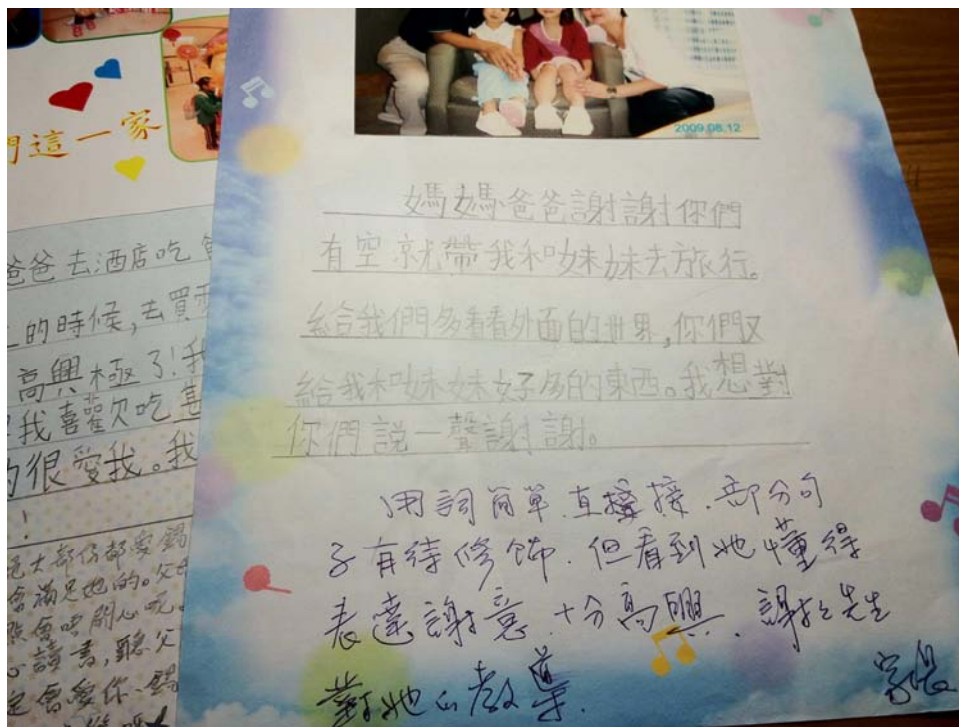 們這一家
爸爸去酒店吃
的時候,去買
高興極了!我
我喜歡吃甚
的很愛我。我
!
大部份都愛錫
會滿足她的。父母
會唔開心呢。
讀書,聽父
定會愛你、錫
2009.08.12
媽媽爸爸謝謝你們
有空就帶我和妹妹去旅行。
給我們多看看外面的世界,你們又
給我和妹妹好多的東西。我想對
你們說一聲謝謝。
用詞簡單、直接、部分句
子有待修飾、但看到她懂得
表達謝意、十分高興、謝謝先生
對她的教導.
家長